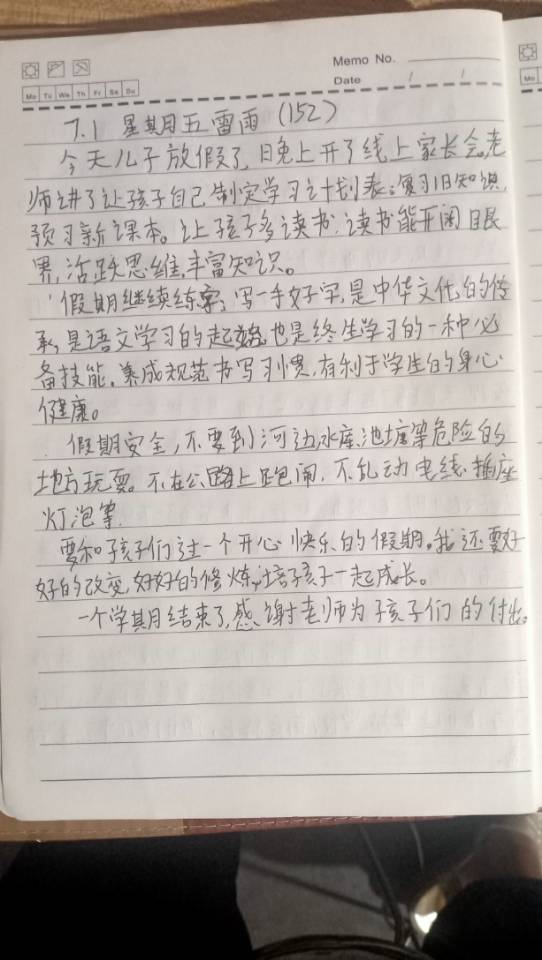 Memo No.
Date / /
Mo Tu We Th Fr Sa Su
7.1 星期五 雷雨 (152)
今天儿子放假了,晚上开了线上家长会,老
师讲了让孩子自己制定学习计划表:复习旧知识,
预习新课本。让孩子多读书,读书能开阔眼
界,活跃思维,丰富知识。
假期继续练字,写一手好字,是中华文化的传
承,是语文学习的起始,也是终生学习的一种必
备技能。养成规范书写习惯,有利于学生的身心
健康。
假期安全,不要到河边水库池塘等危险的
地方玩耍。不在公路上跑闹,不乱动电线、插座
灯泡等
要和孩子们过一个开心快乐的假期。我还要好
好的改变,好好的修炼,陪孩子一起成长。
一个学期结束了,感谢老师为孩子们的付出。
Mo